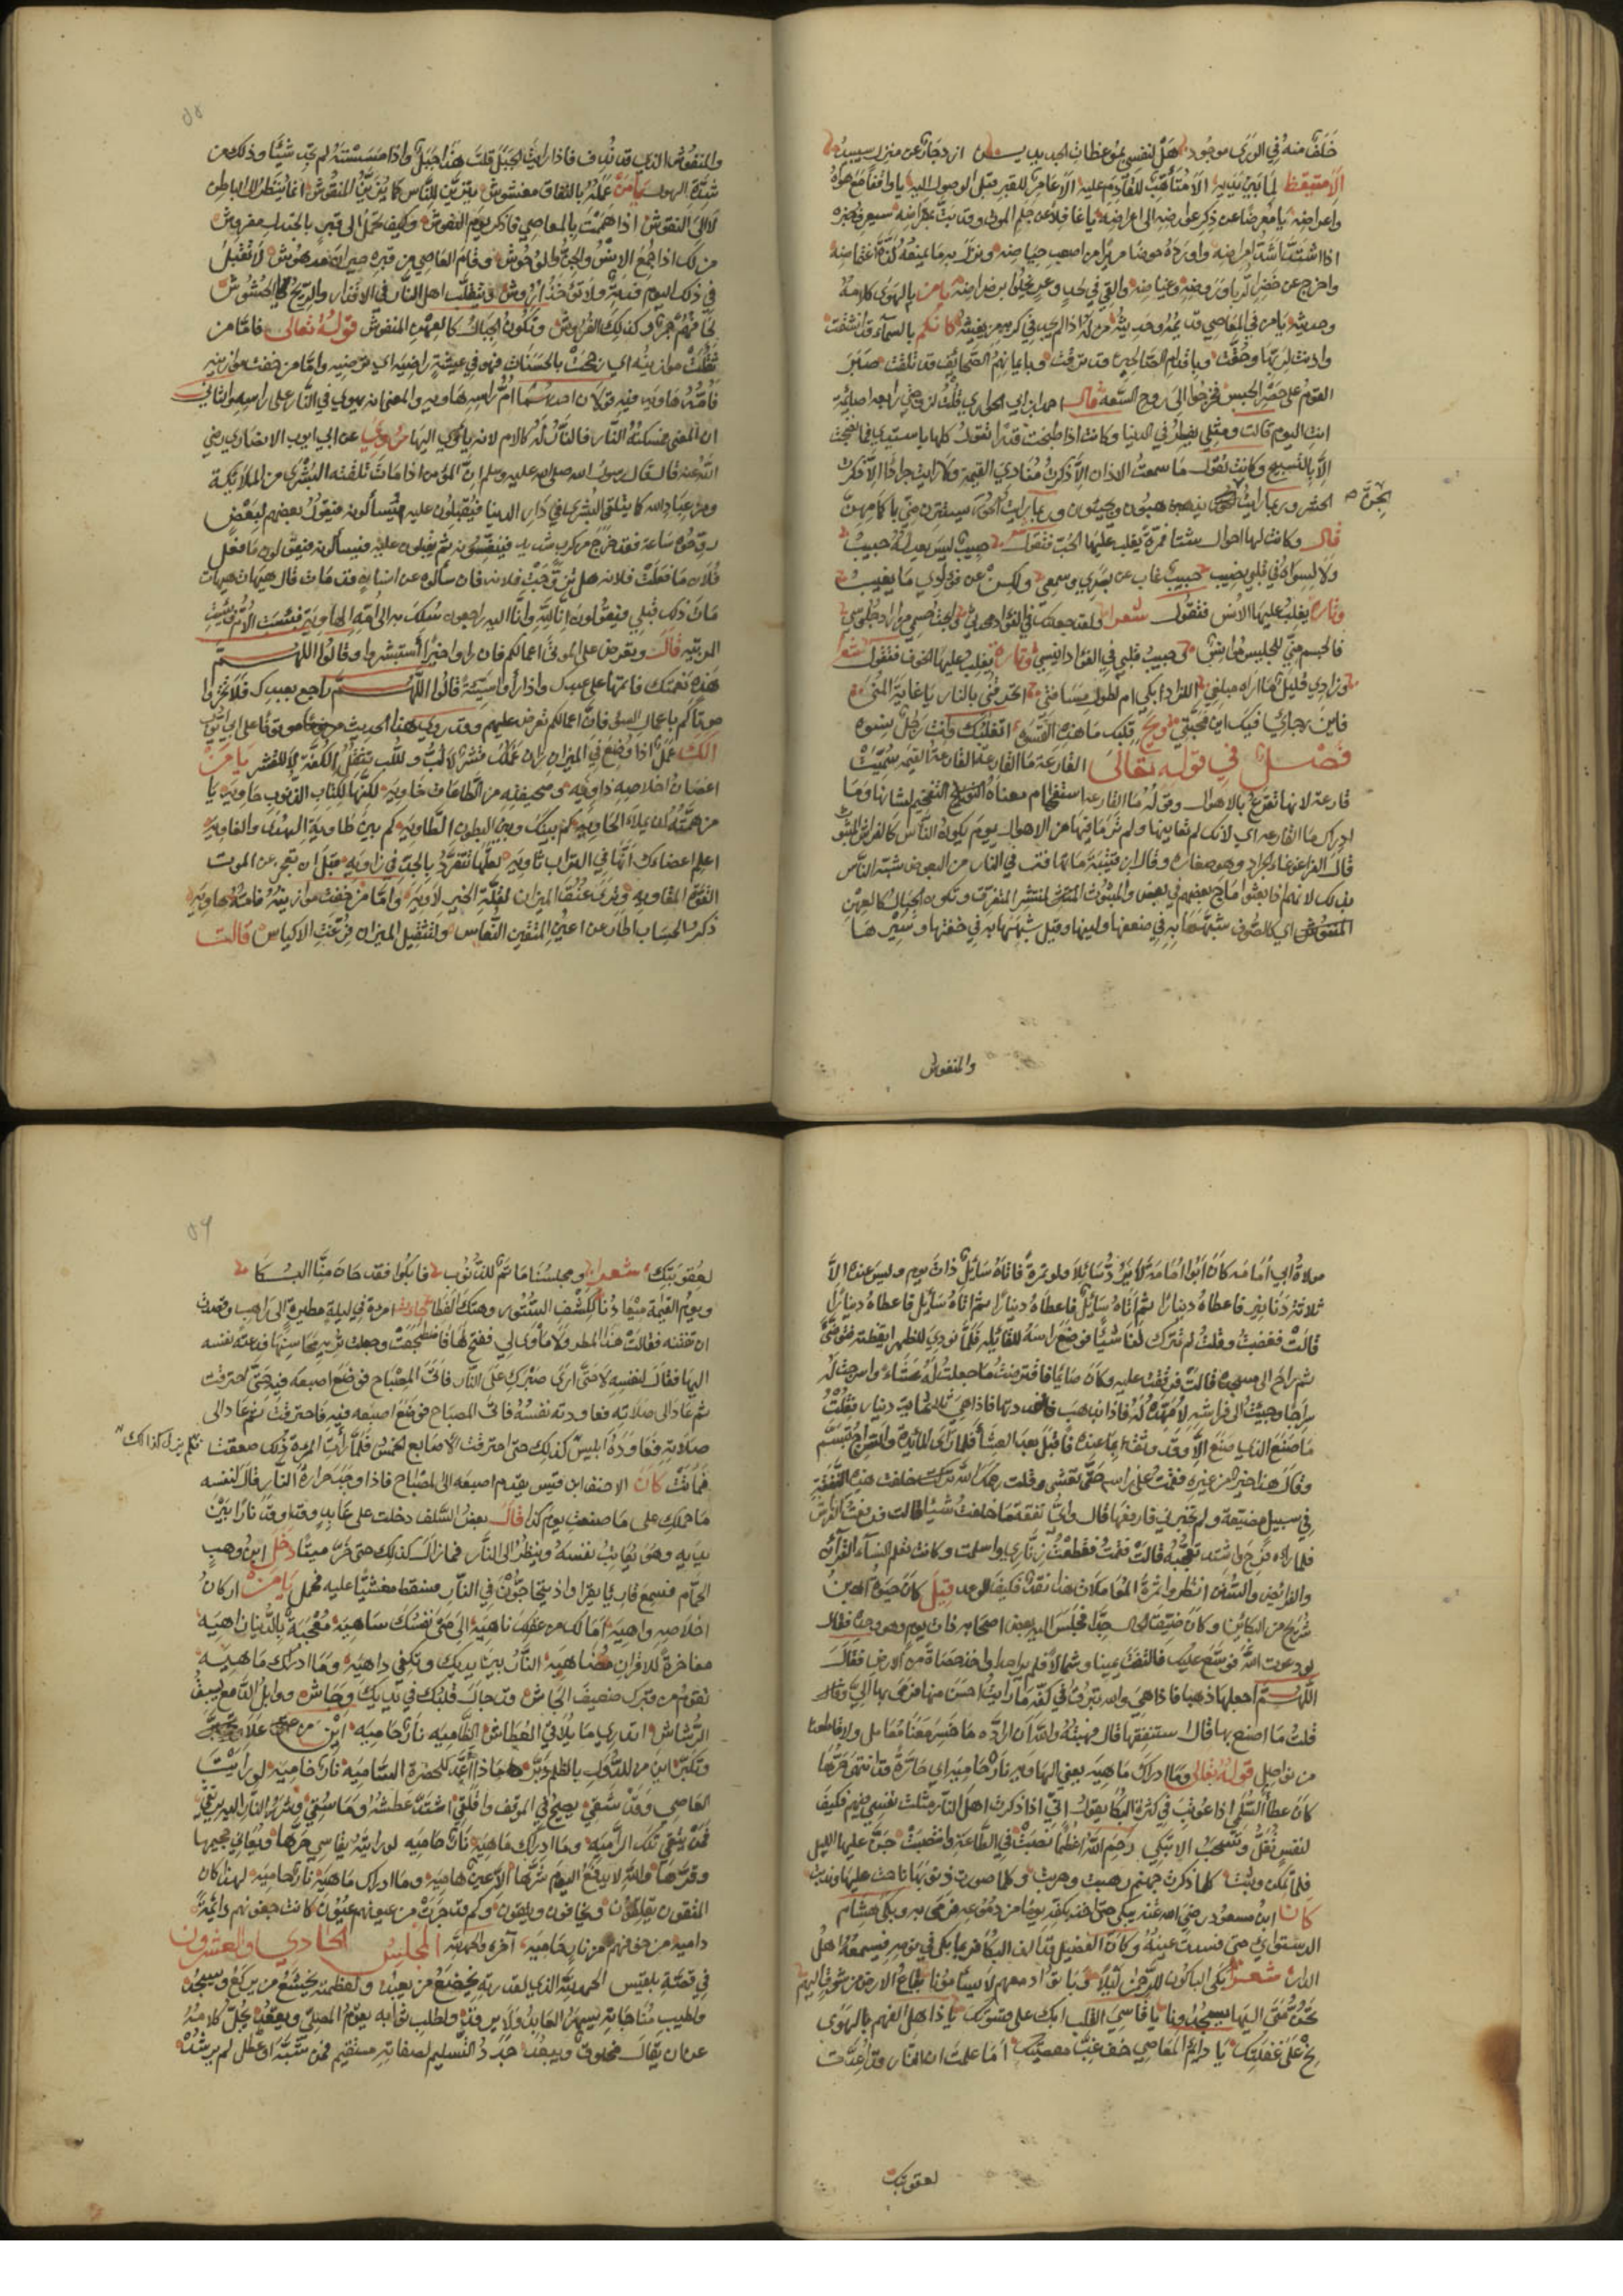 خلف منه في الورى موجود هل لنفسي بموعظات الجديد
الا متيقظ لما بين يديه الا متأهب للقادم عليه الا عامر للقبر قبل الوصول اليه يا واقفا مع هواه
واغراضه يا معرضا عن ذكر عوارضه الى اعراضه يا غافلا عن حكم الموت وقد بت بمقراضه سيعرف خبره
اذا اشتد اشد امراضه واورد حوضا مريرا من اصعب حياضه ونزل به ما يمنعه لذة اغتماضه
واخرج عن خضر الربا وروضه وغياضه والقي في لحد وعر يخلوا برضراضه يا من بالهوى كلامه
وحديثه يا من في المعاصي قديمه وحديثه من له اذا لم يجد في كربه من يغيثه كانكم بالسماء قد انشقت
واذنت لربها وحقت وباقدام الصالحين وقد ترقت وبايمانهم الصحائف قد تلقت صبر
القوم على حصر الحبس فخرجوا الى روح السعة قال احمد ابن ابي الحواري قلت لزوجتي رابعة اصائمة
انت اليوم قالت ومثلي يفطر في الدنيا وكانت اذا طبخت قدرا تقول كلها يا سيدي فما نضجت
الا بالتسبيح وكانت تقول ما سمعت الاذان الا ذكرت منادي القيمة ولا رايت جرادا الا ذكرت
الحشر وربما رايت الجن يذهبون ويجيئون وربما رايت الحور يستترن مني باكمامهن
الجن صح
قال وكانت لها احوال شتا فمرة يغلب عليها الحب فتقول حبيب ليس يعدله حبيب
ولا لسواه في قلبي نصيب حبيب غاب عن بصري وسمعي ولكن عن فؤادي ما يغيب
وتارة يغلب عليها الانس فتقول شعر ولقد جعلتك في الفؤاد محدثي وابحت جسمي من اراد جلوسي
فالجسم مني للجليس مؤانس وحبيب قلبي في الفؤاد انيسي وتارة يغلب عليها الخوف فتقول شعرا
وزادي قليل ما اراه مبلغي اللزاد ابكي ام لطول مسافتي اتحرقني بالنار يا غاية المنى
فاين رجائي فيك اين محبتي
فصل في قوله تعالى القارعة ما القارعة القارعة القيمة سميت
قارعة لانها تقرع بالاهوال وقوله ما القارعة استفهام معناه التفخيم لشانها وما
ادراك ما القارعة اي لانك لم تعاينها ولم تر ما فيها من الاهوال يوم يكون الناس كالفراش المبثوث
قال الفراء غوغاء الجراد وهو صغاره وقال ابن قتيبة ما تهافت في النار من البعوض شبه الناس
بذلك لانهم اذا بعثوا ماج بعضهم في بعض والمبثوث المنتشر المتفرق وتكون الجبال كالعهن
المنفوش اي كالصوف شبهها به في ضعفها ولينها وقيل شبهها به في خفتها وسيرها
والمنفوش
والمنفوش الذي قد ندف فاذا رايت الجبل قلت هذا جبل واذا مسسته لم تجد شيئا وذلك من
شدة الهول يا من عمله بالنفاق مغشوش يتزين للناس كما يزين المنقوش انما ينظر الى الباطن
لا الى النقوش اذا هممت بالمعاصي فاذكر يوم النعوش وكيف تحمل الى قبر بالجندل مفروش
من لك اذا جمع الانس والجن والوحوش وقام العاصي من قبره حيران مدهوش
قوله تعالى فاما من
ثقلت موازينه اي رجحت بالحسنات فهو في عيشة راضية اي مرضية واما من خفت موازينه
فامه هاوية فيه قولان احدهما ام راسه هاوية والمعنى انه يهوي في النار على راسه والثاني
ان المعنى مسكنه النار فالنار له كالام لانه يأوي اليها روي عن ابي ايوب الانصاري رضي
الله عنه قال قال رسول الله صلى الله عليه وسلم ان المؤمن اذا مات تلقته البشرى من الملائكة
ومن عباد الله كما يتلقى البشرى في دار الدنيا فيقبلون عليه فيسألونه فيقول بعضهم لبعض
روحوه ساعة فقد خرج من كرب شديد فينفسون ثم يقبلون عليه فيسألونه فيقولون ما فعل
فلان ما فعلت فلانة هل تزوجت فلانة فان سألوه عن انسان قد مات قال هيهات هيهات
مات ذلك قبلي فيقولون انا لله وانا اليه راجعون سلك به الى امه الهاوية فبئست الام وبئست
المربية قال وتعرض على الموتى اعمالكم فان راوا خيرا استبشروا وقالوا اللهم
هذه نعمتك فاتمها على عبدك واذا راوا سيئة قالوا اللهم راجع بعبدك فلا تخزوا
موتاكم باعمال السوء فان اعمالكم تعرض عليهم وقد روي هذا الحديث موقوفا على ابي ايوب
الك عمل اذا وضع في الميزان زان عملك قشر لا لب واللب يثقل الكفة لا القشر يا من
اعضان اخلاصه ذاوية وصحيفته من الطاعات خاوية لكنها لكتاب الذنوب حاوية يا
من همته ان يملا الحاوية كم بينك وبين البطون الطاوية كم بين طائفة الهدى والغاوية
اعلم اعضاءك انها في التراب ثاوية لعلها تتفرد بالجد في زاوية قبل ان تعجز عن الموت
القوة المقاوية وترى عنق الميزان لقلة الخير لاوية واما من خفت موازينه فامه هاوية
ذكر الحساب اطار عن اعين المتقين النعاس ولتثقيل الميزان فرغت الاكياس قالت
مولاة ابي امامة كان ابوا امامة لا يرد سائلا ولو تمرة فاتاه سائل ذات يوم وليس عنده الا
ثلاثة دنانير فاعطاه دينارا ثم اتاه سائل فاعطاه دينارا ثم اتاه سائل فاعطاه دينارا
قالت فغضبت وقلت لم تترك لنا شيئا فوضع راسه للقائلة فلما نودي للظهر ايقظته فتوضى
ثم راح الى مسجده قالت فرققت عليه وكان صائما فاقترضت ما جعلت له عشاء واسرجت له
سراجا وجئت الى فراشه لامهده له فاذا بذهب فعددتها فاذا هي ثلثمائة دينار فقلت
ما صنع الذي صنع الا وقد وثق بما عنده فاقبل بعد العشا فلما راى المائدة والسراج تبسم
وقال هذا خير من غيره فقمت على راسه حتى تعشى وقلت رحمك الله تركت خلفت هذه النفقة
في سبيل مضيعة ولم تخبرني فارفعها قال واي نفقة ما خلفت شيئا قالت فرفعت الفراش
فلما راه فرح واشتد تعجبه قالت فقمت فقطعت زناري واسلمت وكانت تعلم النساء القرآن
والفرائض والسنن انظروا ثمرة المعاملات هذا نقد فكيف الوعد قيل كان حيوة بن
شريح من البكائين وكان ضيق الحال جدا فجلس اليه بعض اصحابه ذات يوم وهو وحده فقال
لو دعوت الله فوسع عليك فالتفت يمينا وشمالا فلم ير احدا فاخذ حصاة من الارض فقال
اللهم اجعلها ذهبا فاذا هي والله تبرة في كفه ما رايت احسن منها فرمى بها الي وقال
قلت ما اصنع بها قال استنفقها قال فهبته والله ان ارده ما خسر معنا معامل ولا قاطعنا
من تواصل قوله تعالى وما ادراك ما هيه يعني الهاوية نار حامية اي حارة قد انتهى حرها
كان عطاء السلمي اذا عوتب في كثرة البكا يقول اني اذا ذكرت اهل النار مثلت نفسي فيهم فكيف
لنفس تغل وتسحب الا تبكي رحم الله اعظما نصبت في الطاعة وانتصبت جن عليها الليل
فلما تمكن وثبت كلما ذكرت جهنم رهبت وهربت وكلما صورت ذنوبها ناحت عليها وندبت
كان ابن مسعود رضي الله عنه يبكي حتى اخذ بكفه يوما من دموعه فرمى به وبكى هشام
الدستوائي حتى فسدت عينه وكان الفضيل قد الف البكا فربما بكى في نومه فيسمعه اهل
الدار شعر بكى الباكون للرحمن ليلا وباتوا دمعهم لا يسأمونا بقاع الارض من شوق اليهم
تحن متى اليها يسجدونا يا قاسي القلب ابك على قسوتك يا ذاهل الفهم بالهوى
نح على غفلتك يا دائم المعاصي خف غب معصيتك اما علمت ان النار قد اعدت
لعقوبتك
لعقوبتك شعر ومجلسنا ماتم للذنوب فابكوا فقد حان منا البكا
ويوم القيمة ميعادنا لكشف الستور وهتك الغطا جاءت امرءة في ليلة مطيرة الى راهب وقصدت
ان تفتنه فقالت هذا المطر ولا مأوى لي ففتح لها فاضطجعت وجعلت تريه محاسنها فدعته نفسه
اليها فقال لنفسه لا حتى ارى صبرك على النار فاتى المصباح فوضع اصبعه فيه حتى احترقت
ثم عاد الى صلاته فعاودته نفسه فاتى المصباح فوضع اصبعه فيه فاحترقت ثم عاد الى
صلاته فعاوده ابليس كذلك حتى احترقت الاصابع الخمس فلما رأت المرءة ذلك صعقت
فلم يزل كذالك
فماتت كان الاحنف ابن قيس يقدم اصبعه الى المصباح فاذا وجد حرارة النار قال لنفسه
ما حملك على ما صنعت يوم كذا قال بعض السلف دخلت على عابد وقد اوقد نارا بين
يديه وهو يعاتب نفسه وينظر الى النار فما زال كذلك حتى خر ميتا دخل ابن وهب
الحمام فسمع قارئا يقرا واذ يتحاجون في النار فسقط مغشيا عليه فحمل يا من اركان
اخلاصه واهية اما لك من عقلك ناهية الى متى نفسك ساهية معجبة بالدنيا زاهية
مفاخرة للاقران مضاهية النار بين يديك وتكفي داهية وما ادراك ما هيه
تقوم من قبرك ضعيف الجاش وقد جال قلبك في يديك وجاش ووابل الدمع يسبق
الرشاش اتدري ما يلاقي العطاش الظامية نار حامية اين من علا وتجبر
وتكبر اين من للدول بالظلم دبر ماذا اعد للحضرة السامية نار حامية لو رايت
العاصي وقد شقي يصيح في الموقف واقلقي اشتد عطشه وما سقي وشرر النار اليه يرتقي
فمن يتقي تلك الرامية وما ادراك ماهية نار حامية لو رايته يقاسي حرها ويعاني جحيمها
وقرها والله لا يدفع اليوم شرها الا عين هامية وما ادراك ماهية نار حامية لهذا كان
المتقون يقلقون ويخافون ويتقون وكم قد جرت من عيونهم عيون كانت جفونهم دائما
دامية من خوفهم من نار حامية آخره والحمد لله المجلس الحادي والعشرون
في قصة بلقيس الحمد لله الذي لقدرته يخضع من يعبد ولعظمته يخشع من يركع ويسجد
ولطيب مناجاته يسهر العابد ولا يرقد ولطلب ثوابه يقوم المصلي ويقعد يجل كلامه
عن ان يقال مخلوق ويبعد جدد التسليم لصفاته مستقيم فمن شبه او عطل لم يرشد